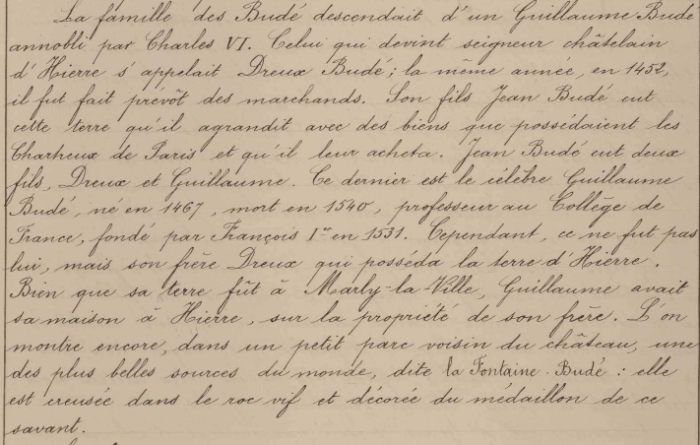 La famille des Budé descendait d'un Guillaume Budé
annobli par Charles VI. Celui qui devint seigneur châtelain
d'Hierre s'appelait Dreux Budé ; la même année, en 1452,
il fut fait prévôt des marchands. Son fils Jean Budé eut
cette terre qu'il agrandit avec des biens que possédaient les
Chartreux de Paris et qu'il leur acheta. Jean Budé eut deux
fils, Dreux et Guillaume. Ce dernier est le célèbre Guillaume
Budé, né en 1467, mort en 1540, professeur au Collège de
France, fondé par François Ier en 1531. Cependant, ce ne fut pas
lui, mais son frère Dreux qui posséda la terre d'Hierre.
Bien que sa terre fût à Marly-la-Ville, Guillaume avait
sa maison à Hierre, sur la propriété de son frère. L'on
montre encore, dans un petit parc voisin du château, une
des plus belles sources du monde, dite la Fontaine-Budé : elle
est creusée dans le roc vif et décorée du médaillon de ce
savant.